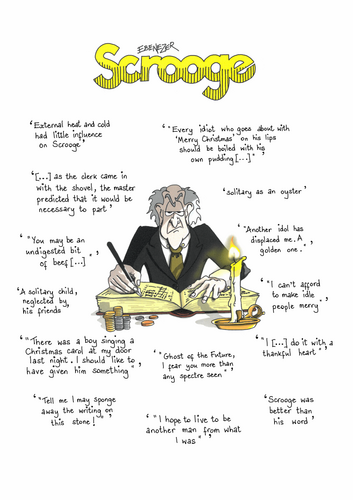 EBENEZER
Scrooge
'External heat and cold
had little influence
on Scrooge'
'"Every idiot who goes about with
'Merry Christmas' on his lips
should be boiled with his
own pudding [...]"'
'[...] as the clerk came in
with the shovel, the master
predicted that it would be
necessary to part'
'solitary as an oyster'
'"You may be an
undigested bit
of beef [...]"'
'"Another idol has
displaced me. A
golden one."'
'A solitary child,
neglected by
his friends'
'"I can't afford
to make idle
people merry"'
'"There was a boy singing a
Christmas carol at my door
last night. I should like to
have given him something"'
'"Ghost of the Future,
I fear you more than
any spectre seen"'
'"I [...] do it with a
thankful heart"'
'"Tell me I may sponge
away the writing on
this stone!"'
'"I hope to live to be
another man from what
I was"'
'Scrooge was
better than
his word'